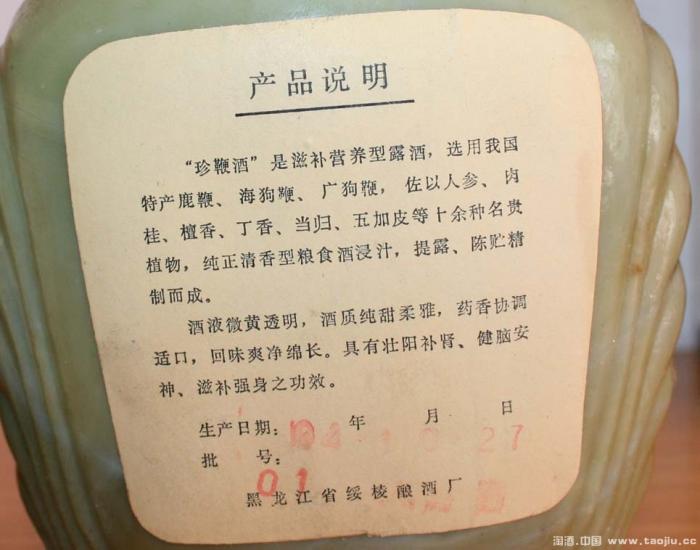 产品说明
“珍鞭酒”是滋补营养型露酒，选用我国
特产鹿鞭、海狗鞭、广狗鞭，佐以人参、肉
桂、檀香、丁香、当归、五加皮等十余种名贵
植物，纯正清香型粮食酒浸汁，提露、陈贮精
制而成。
酒液微黄透明，酒质纯甜柔雅，药香协调
适口，回味爽净绵长。具有壮阳补肾、健脑安
神、滋补强身之功效。
生产日期： 年 月 日
27
批 号：
01
黑龙江省绥棱酿酒厂
淘酒.中国 www.taojiu.cc